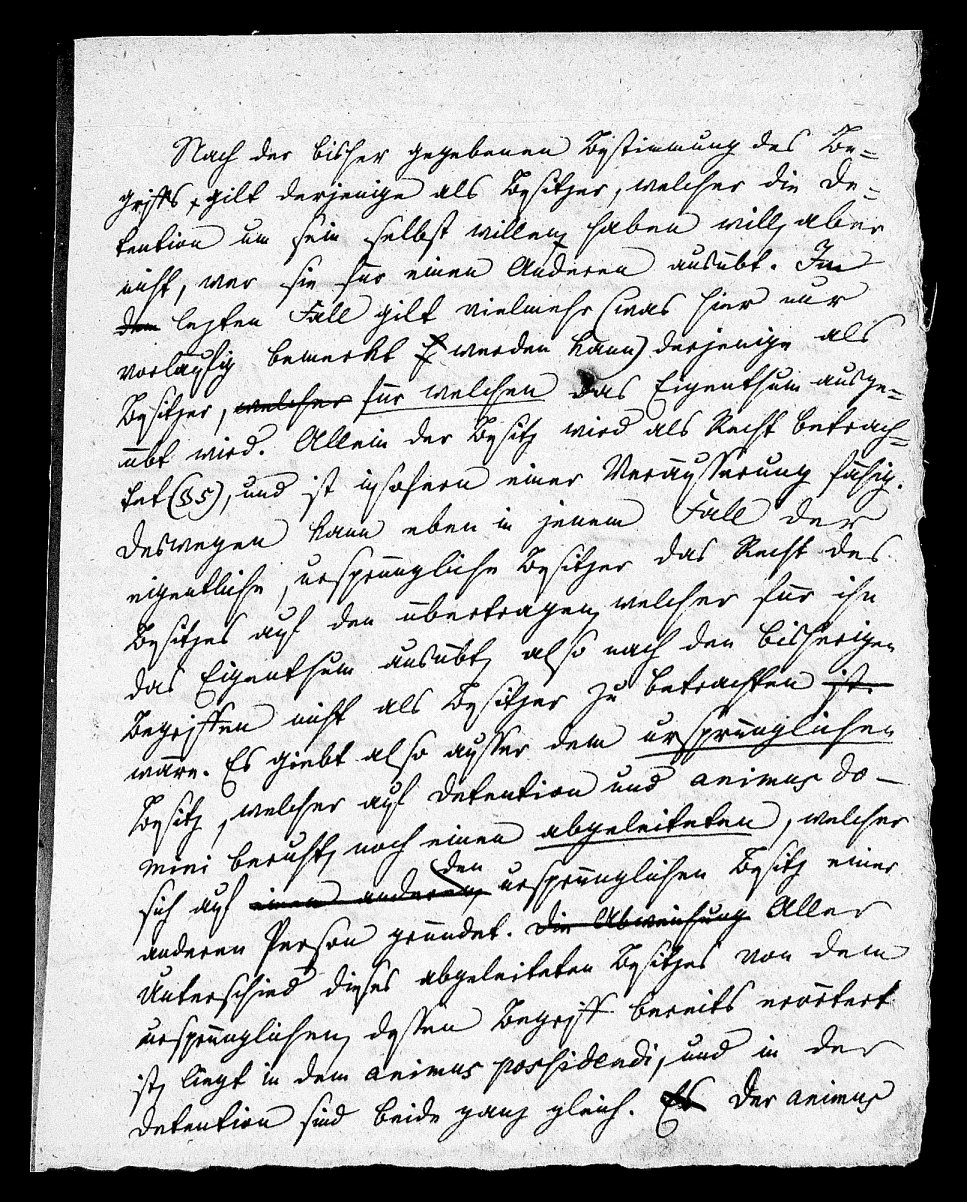 Nach der bisher gegebenen Bestimmung des Be-
griffs, gilt derjenige als Besitzer, welcher die De-
tention um sein selbst willen haben will, aber
nicht, wer sie für einen Anderen ausübt. Im
dem lezten Fall gilt vielmehr (was hier nur
vorläufig bemerkt werden kann) derjenige als
Besitzer, welcher für welchen das Eigenthum ausge-
übt wird. Allein der Besitz wird als Recht betrach-
tet (§ 5), und ist insofern einer Veräusserung fähig.
Deswegen kann eben in jenem Fall der
eigentliche, ursprüngliche Besitzer das Recht des
Besitzes auf den übertragen, welcher für ihn
das Eigenthum ausübt, also nach den bisherigen
Begriffen nicht als Besitzer zu betrachten ist.
wäre. Es giebt also ausser dem ursprünglichen
Besitz, welcher auf Detention und animus do-
mini beruht, noch einen abgeleiteten, welcher
sich auf einem anderen, den ursprünglichen Besitz einer
anderen Person gründet. Die Abweichung Aller
Unterschied dieses abgeleiteten Besitzes von dem
ursprünglichen, dessen Begriff bereits erörtert
ist, liegt in dem animus possidendi, und in der
Detention sind beide ganz gleich. Es Der animus